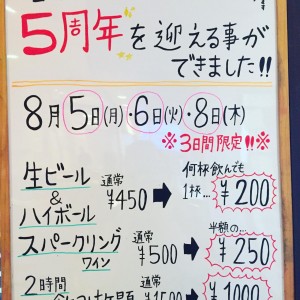 5周年を迎える事が
できました!!
8月5日(月)・6日(火)・8日(木)
※3日間限定!!※
生ビール
&
ハイボール
通常
¥450
何杯飲んでも
1杯...¥200
スパークリング
ワイン
通常
¥500
半額の...
¥250
2時間
通常
¥1000